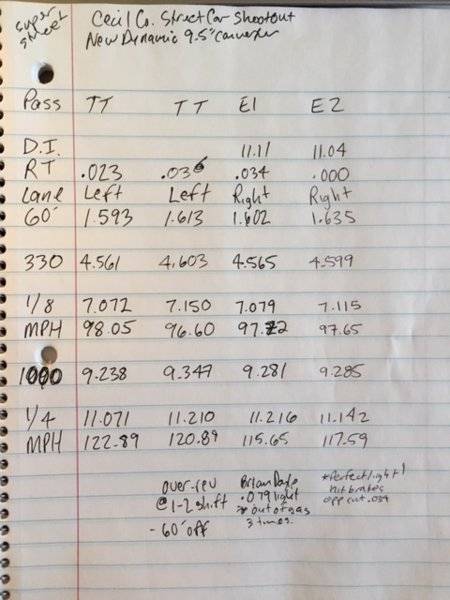 super street
Cecil Co. Street Car Shootout
New Dynamic 9.5" Converter
Pass TT TT E1 E2
D.I. 11.11 11.04
RT .023 .036 .034 .000
Lane Left Left Right Right
60' 1.593 1.613 1.602 1.635
330 4.561 4.603 4.565 4.599
1/8 7.072 7.150 7.079 7.115
MPH 98.05 96.60 97.72 97.65
1000 9.238 9.347 9.281 9.285
1/4 11.071 11.210 11.216 11.142
MPH 122.89 120.89 115.65 117.59
over-rev Brian *Perfect light!
@1-2 shift .079 light hit brakes
* out of gas opp cut .034
- 60' off 3 times.